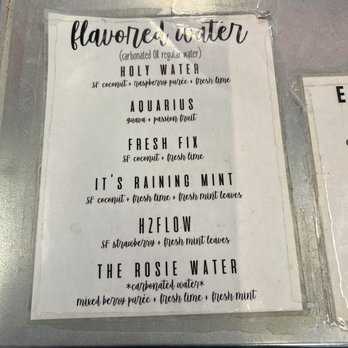 flavored water
(carbonated OR regular water)
HOLY WATER
SF coconut + raspberry purée + fresh lime
AQUARIUS
guava + passion fruit
FRESH FIX
SF coconut + fresh lime
IT'S RAINING MINT
SF coconut + fresh lime + fresh mint leaves
H2FLOW
SF strawberry + fresh mint leaves
THE ROSIE WATER
*carbonated water*
mixed berry purée + fresh lime + fresh mint
E